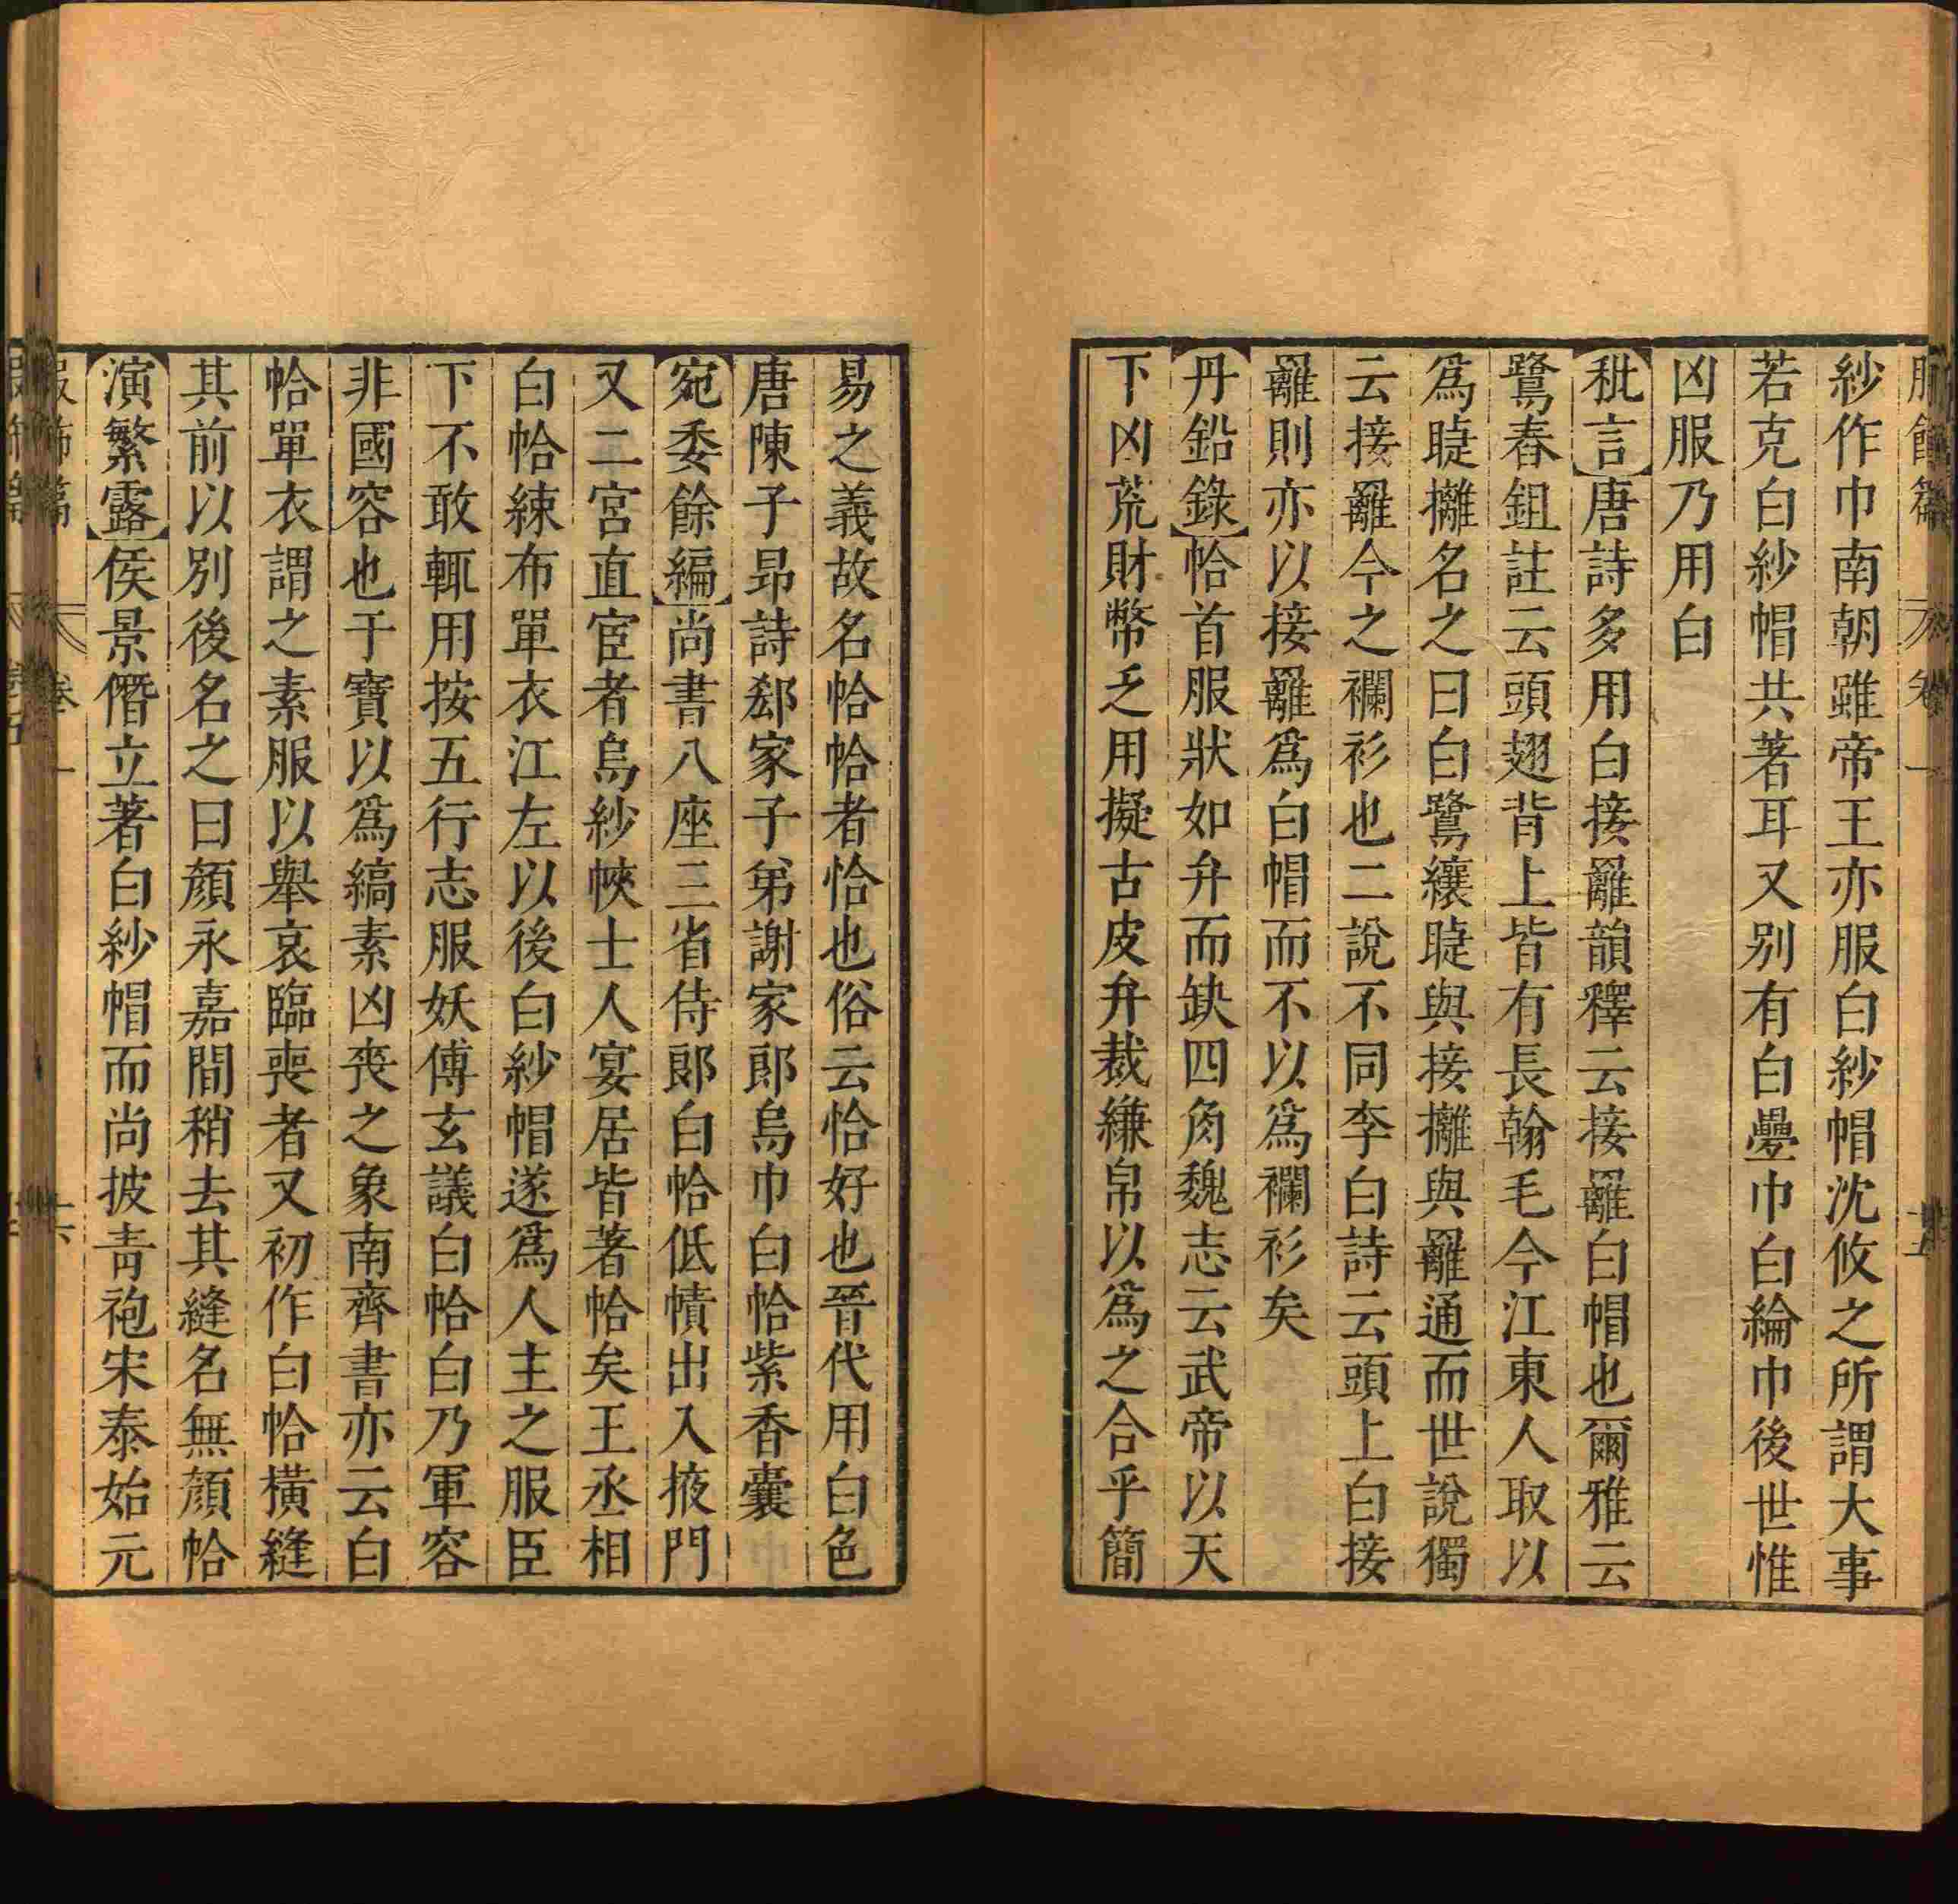 紗作巾南朝雖帝王亦服白紗帽沈攸之所謂大事
若克白紗帽共著耳又别有白疊巾白綸巾後世惟
凶服乃用白
秕言唐詩多用白接䍦韻釋云接䍦白帽也爾雅云
鷺春鉏註云頭翅背上皆有長翰毛今江東人取以
爲睫攡名之曰白鷺纕睫與接攡與䍦通而世說獨
云接䍦今之襴衫也二說不同李白詩云頭上白接
䍦則亦以接䍦爲白帽而不以爲襴衫矣
丹鉛錄帢首服狀如弁而缺四角魏志云武帝以天
下凶荒財幣乏用擬古皮弁裁縑帛以爲之合乎簡
易之義故名帢帢者恰也俗云恰好也晉代用白色
唐陳子昂詩郄家子弟謝家郎烏巾白帢紫香囊
宛委餘編尚書八座三省侍郎白帢低幘出入掖門
又二宮直宦者烏紗㡇士人宴居皆著帢矣王丞相
白帢練布單衣江左以後白紗帽遂爲人主之服臣
下不敢輒用按五行志服妖傅玄議白帢白乃軍容
非國容也干寶以爲縞素凶喪之象南齊書亦云白
帢單衣謂之素服以舉哀臨喪者又初作白帢橫縫
其前以別後名之曰顏永嘉間稍去其縫名無顏帢
演繁露侯景僭立著白紗帽而尚披青袍宋泰始元
卷一